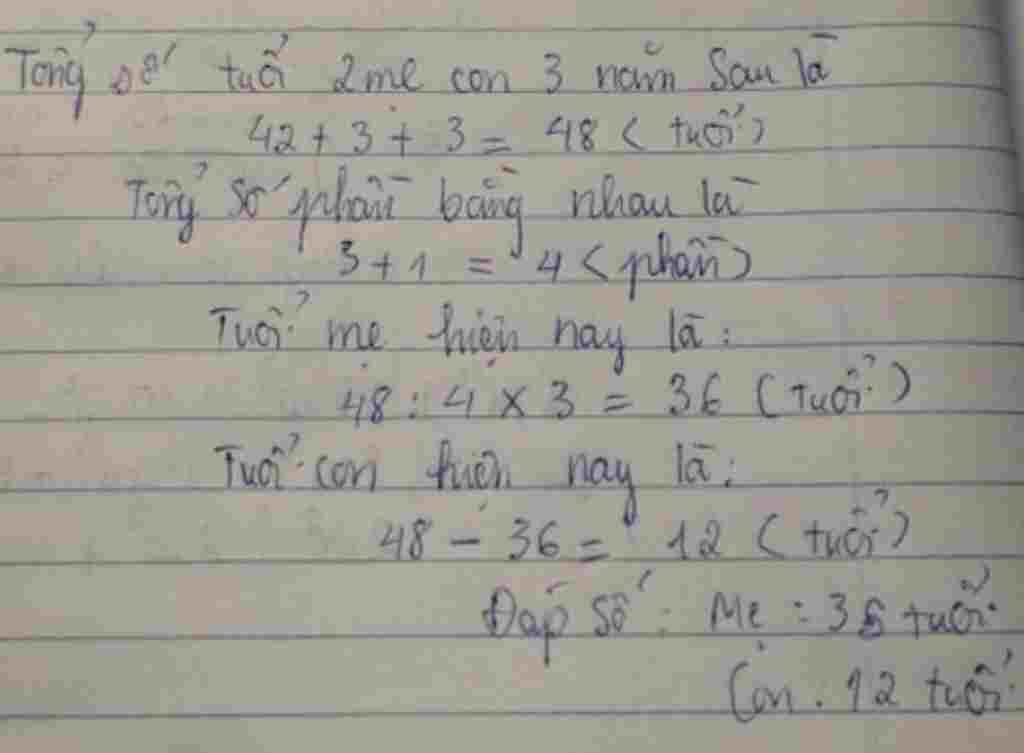 Tổng số tuổi 2 mẹ con 3 năm sau là
42 + 3 + 3 = 48 ( tuổi )
Tổng số phần bằng nhau là
3 + 1 = 4 ( phần )
Tuổi mẹ hiện nay là :
48 : 4 x 3 = 36 ( tuổi )
Tuổi con hiện nay là :
48 - 36 = 12 ( tuổi )
Đáp số : Mẹ : 36 tuổi
Con . 12 tuổi